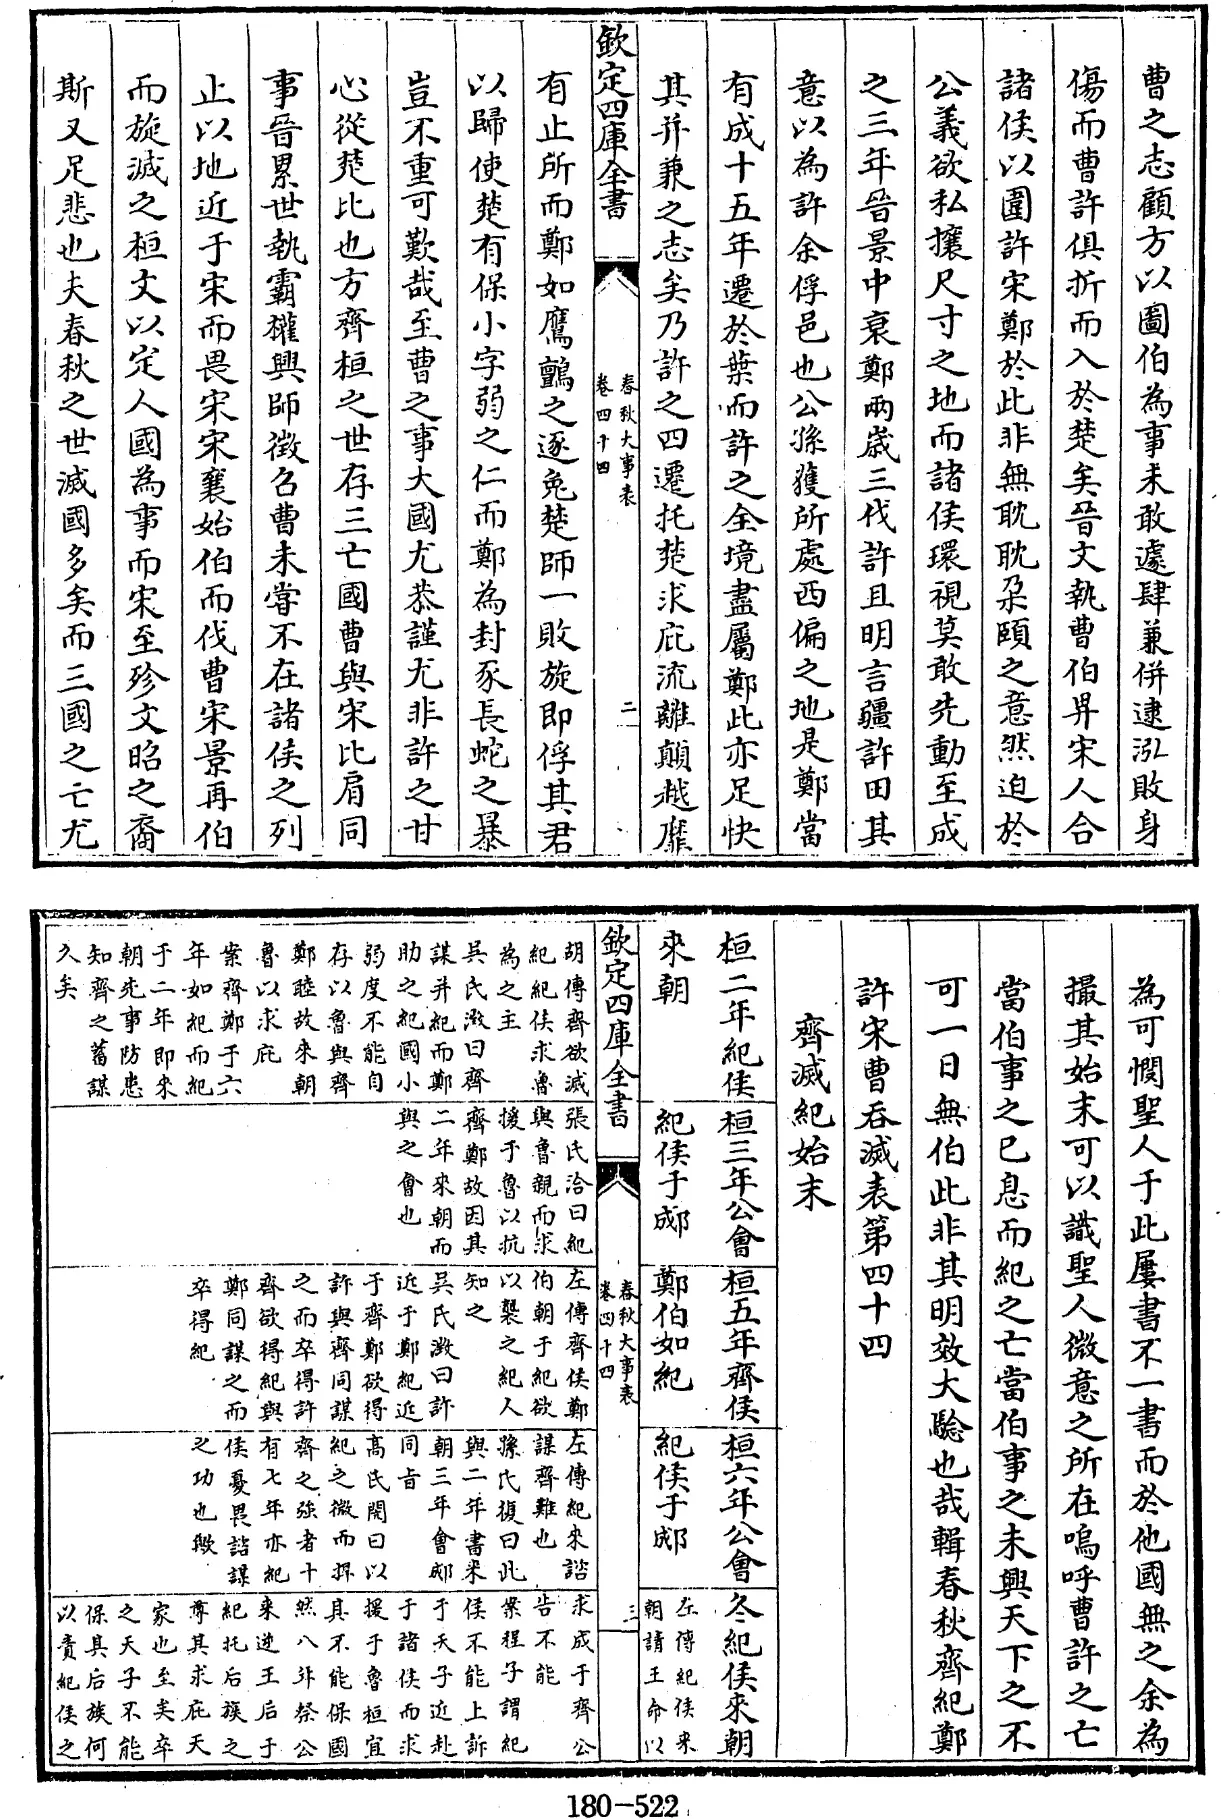 曹之志顧方以圖伯為事未敢遽肆兼併逮泓敗身
傷而曹許俱折而入於楚矣晉文執曹伯畀宋人合
諸侯以圍許宋鄭於此非無耽耽朶頤之意然迫於
公義欲私攘尺寸之地而諸侯環視莫敢先動至成
之三年晉景中衰鄭兩歲三伐許且明言疆許田其
意以為許余俘邑也公孫獲所處西偏之地是鄭當
有成十五年遷於葉而許之全境盡屬鄭此亦足快
其并兼之志矣乃許之四遷托楚求庇流離顛越靡
欽定四庫全書
春秋大事表
卷四十四
二
有止所而鄭如鷹鸇之逐兔楚師一敗旋即俘其君
以歸使楚有保小字弱之仁而鄭為封豕長蛇之暴
豈不重可歎哉至曹之事大國尤恭謹尤非許之甘
心從楚比也方齊桓之世存三亡國曹與宋比肩同
事晉累世執霸權興師徵召曹未嘗不在諸侯之列
止以地近于宋而畏宋宋襄始伯而伐曹宋景再伯
而旋滅之桓文以定人國為事而宋至殄文昭之裔
斯又足悲也夫春秋之世滅國多矣而三國之亡尤
為可憫聖人于此屢書不一書而於他國無之余為
撮其始末可以識聖人微意之所在嗚呼曹許之亡
當伯事之已息而紀之亡當伯事之未興天下之不
可一日無伯此非其明效大驗也哉輯春秋齊紀鄭
許宋曹吞滅表第四十四
齊滅紀始末
桓二年紀侯
來朝
胡傳齊欲滅
紀紀侯求魯
為之主
吳氏澂曰齊
謀并紀而鄭
助之紀國小
弱度不能自
存以魯與齊
鄭睦故來朝
魯以求庇
案齊鄭于六
年如紀而紀
于二年即來
朝先事防患
知齊之蓄謀
久矣
桓三年公會
紀侯于郕
張氏洽曰紀
與魯親而求
援于魯以抗
齊鄭故因其
二年來朝而
與之會也
桓五年齊侯
鄭伯如紀
左傳齊侯鄭
伯朝于紀欲
以襲之紀人
知之
吳氏澂曰許
近于鄭紀近
于齊鄭欲得
許與齊同謀
之而卒得許
齊欲得紀與
鄭同謀之而
卒得紀
桓六年公會
紀侯于郕
左傳紀來諮
謀齊難也
孫氏復曰此
與二年書來
朝三年會郕
同旨
高氏閌曰以
紀之微而捍
齊之強者十
有七年亦紀
侯憂畏諮謀
之功也歟
冬紀侯來朝
左傳紀侯來
朝請王命以
求成于齊公
告不能
案程子謂紀
侯不能上訴
于天子近赴
于諸侯而求
援于魯桓宜
其不能保國
然八年祭公
來逆王后于
紀托后族之
尊其求庇天
家也至矣卒
之天子不能
保其后族何
以責紀侯之
欽定四庫全書
春秋大事表
卷四十四
三
180-522